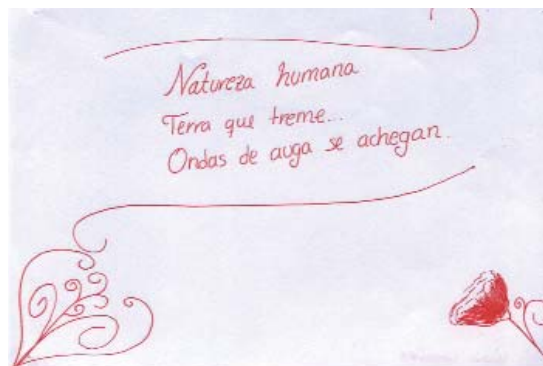 Natureza humana
Terra que treme...
Ondas de auga se achegan.